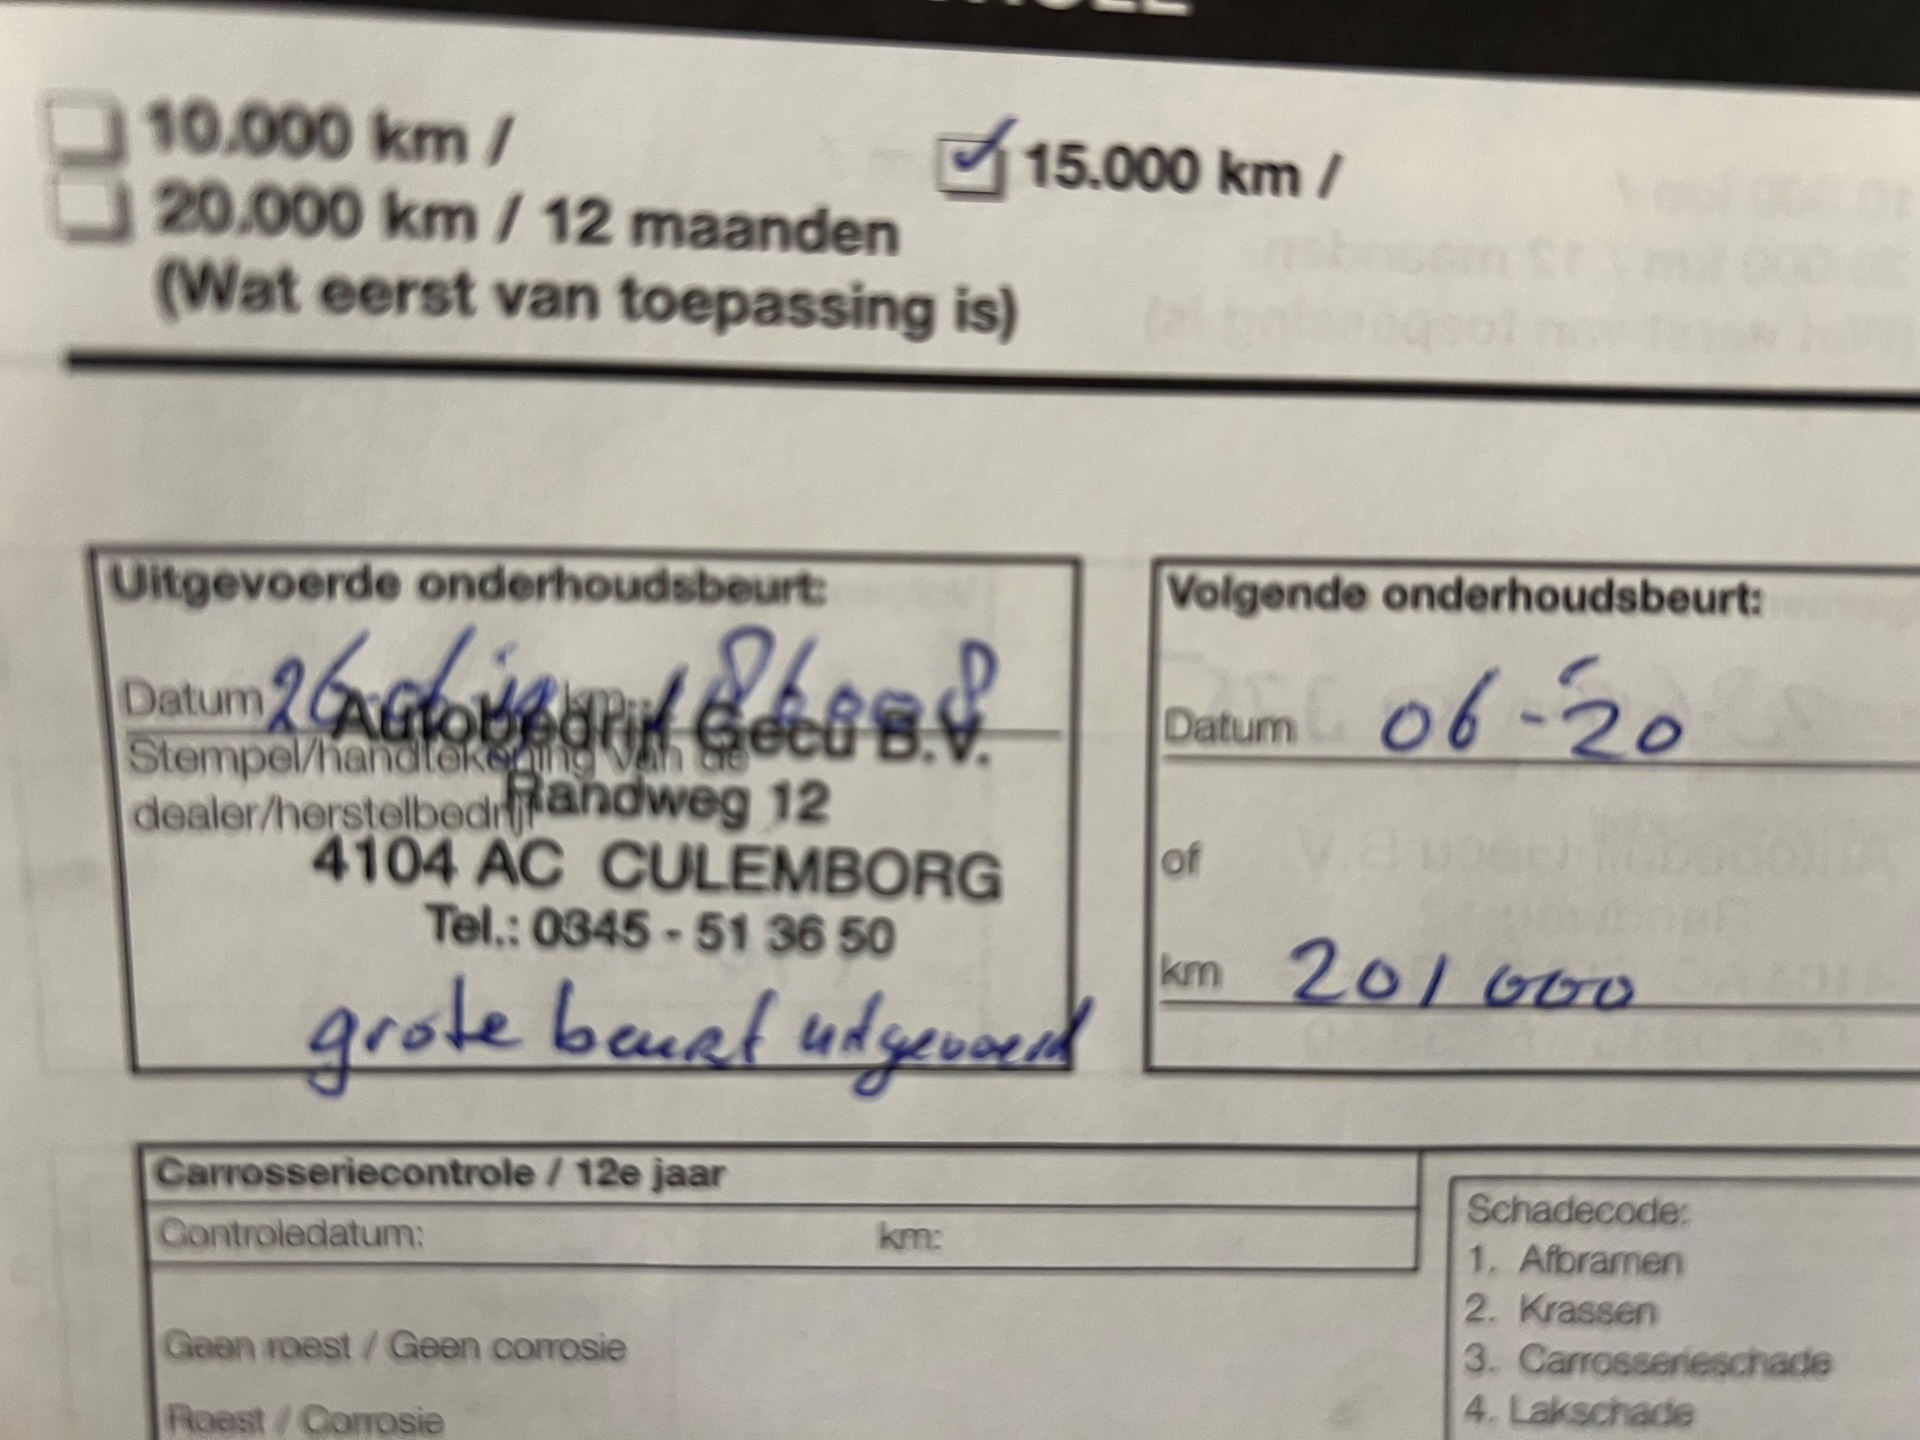 10.000 km /
15.000 km /
20.000 km / 12 maanden
(Wat eerst van toepassing is)
Uitgevoerde onderhoudsbeurt:
Datum 26-06-19 km: 186008
Stempel/handtekening van de
dealer/herstelbedrijf
Autobedrijf Gecu B.V.
Randweg 12
4104 AC CULEMBORG
Tel.: 0345 - 51 36 50
grote beurt uitgevoerd
Volgende onderhoudsbeurt:
Datum 06-20
of
km 201 000
Carrosseriecontrole / 12e jaar
Controledatum: km:
Geen roest / Geen corrosie
Roest / Corrosie
Schadecode:
1. Afbramen
2. Krassen
3. Carrosserieschade
4. Lakschade